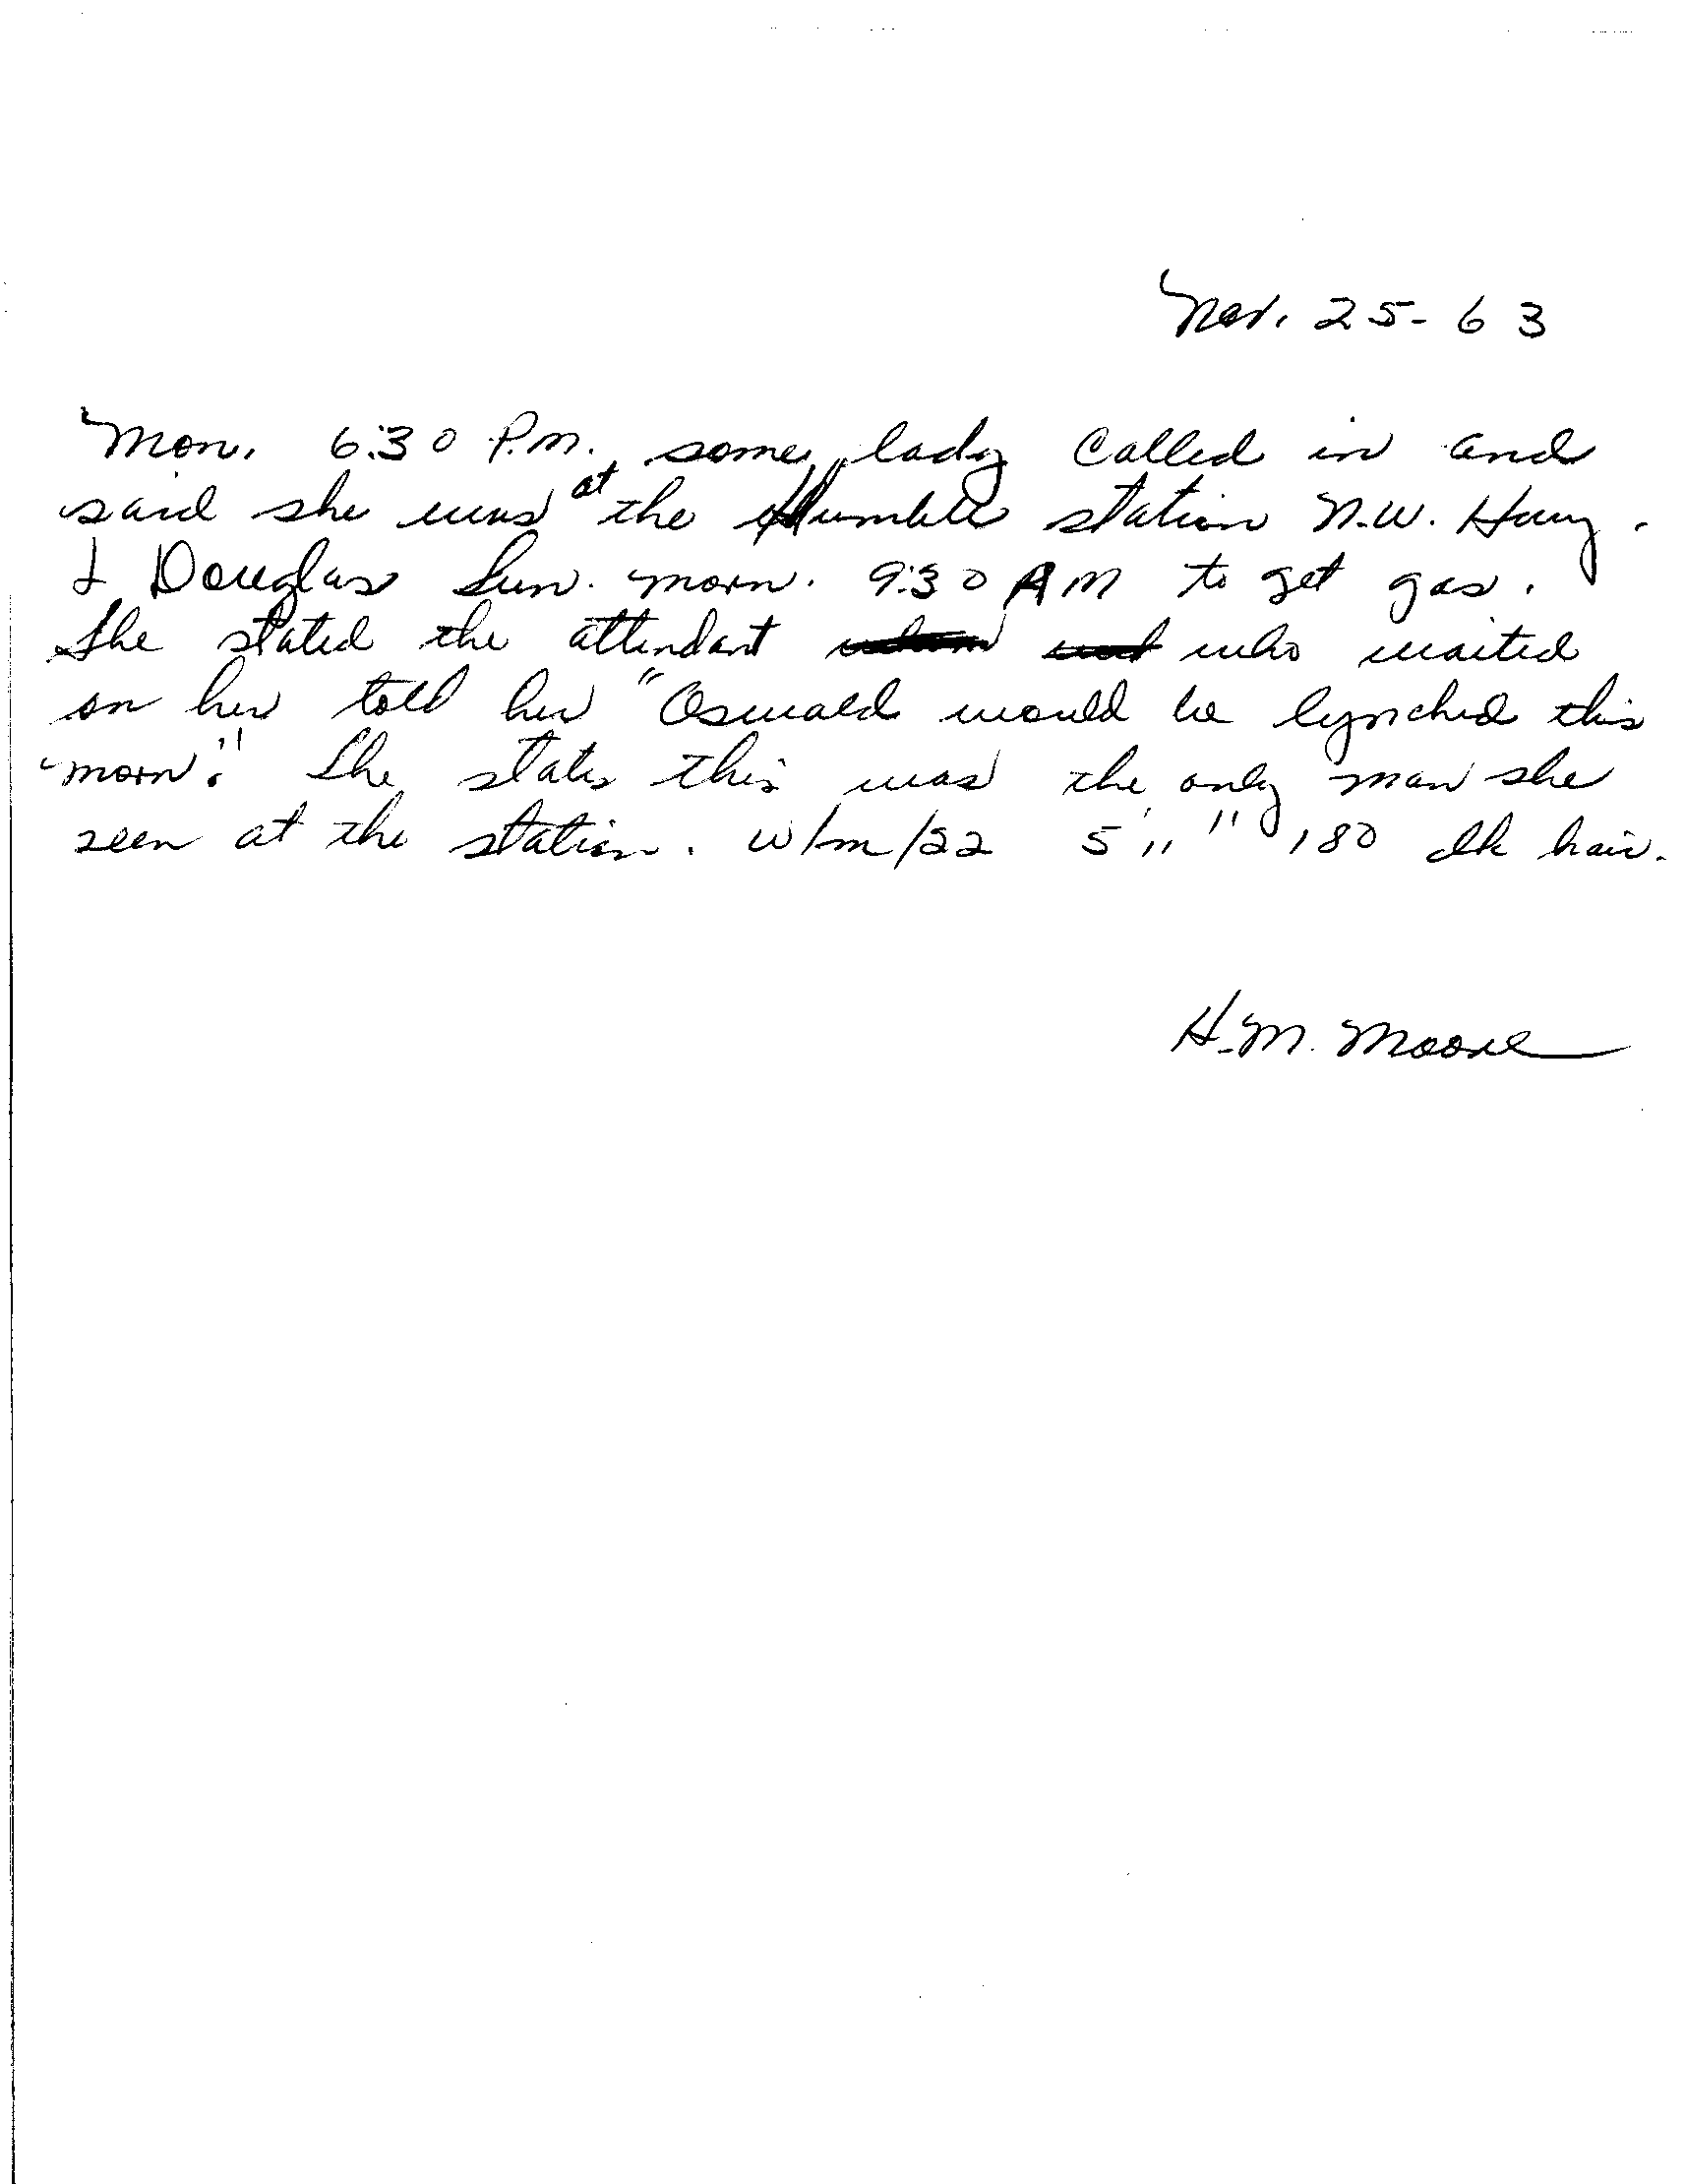 Nov. 25-63
Mon. 6:30 P.M. some lady called in and
said she was at the Humble station N.W. Hwy.
& Douglas Sun. morn. 9:30 AM to get gas.
She stated the attendant who waited
on her told her "Oswald would be lynched this
morn." She states this was the only man she
seen at the station. w/m/22 5'11" 180 dk hair.
H.M. Moore